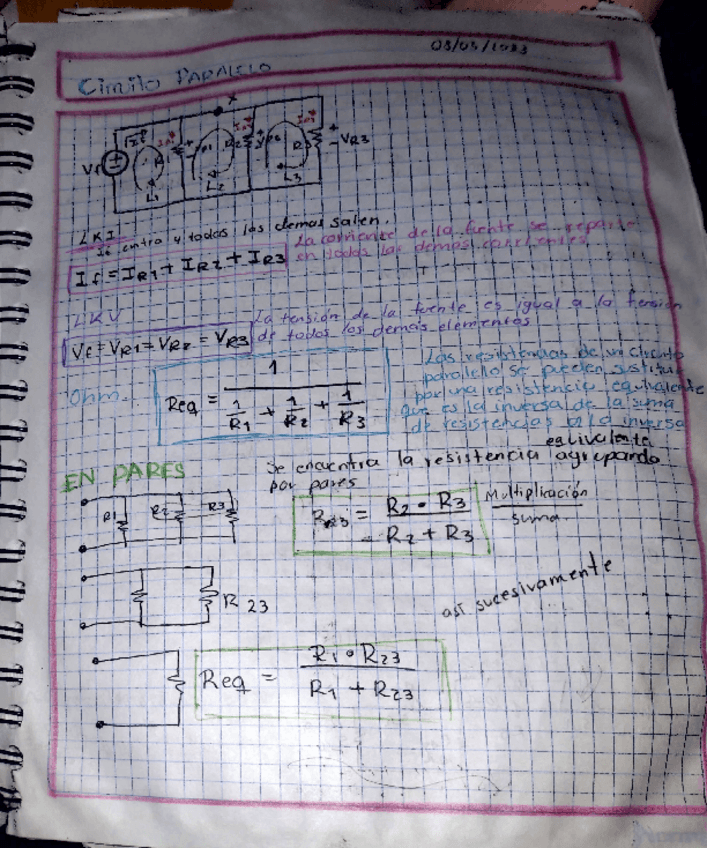 08/05/2023
Circuito PARALELO
X
Vf
If
R1
R2
R3
VR3
L1
L2
L3
LKI
If entra y todas las demas salen.
La corriente de la fuente se reparte
en todas las demas corrientes
If = IR1 + IR2 + IR3
LKV
La tensión de la fuente es igual a la tensión
de todos los demás elementos
Vf = VR1 = VR2 = VR3
Ohm.
Req = 1 / (1/R1 + 1/R2 + 1/R3)
Las resistencias de un circuito
paralelo se pueden sustituir
por una resistencia equivalente
que es la inversa de la suma
de resistencias a la inversa
EN PARES
Se encuentra la resistencia equivalente agrupando
por pares
R1
R2
R3
R23 = R2 • R3 / R2 + R3
Multiplicación
suma
R 23
así sucesivamente
Req = R1 • R23 / R1 + R23